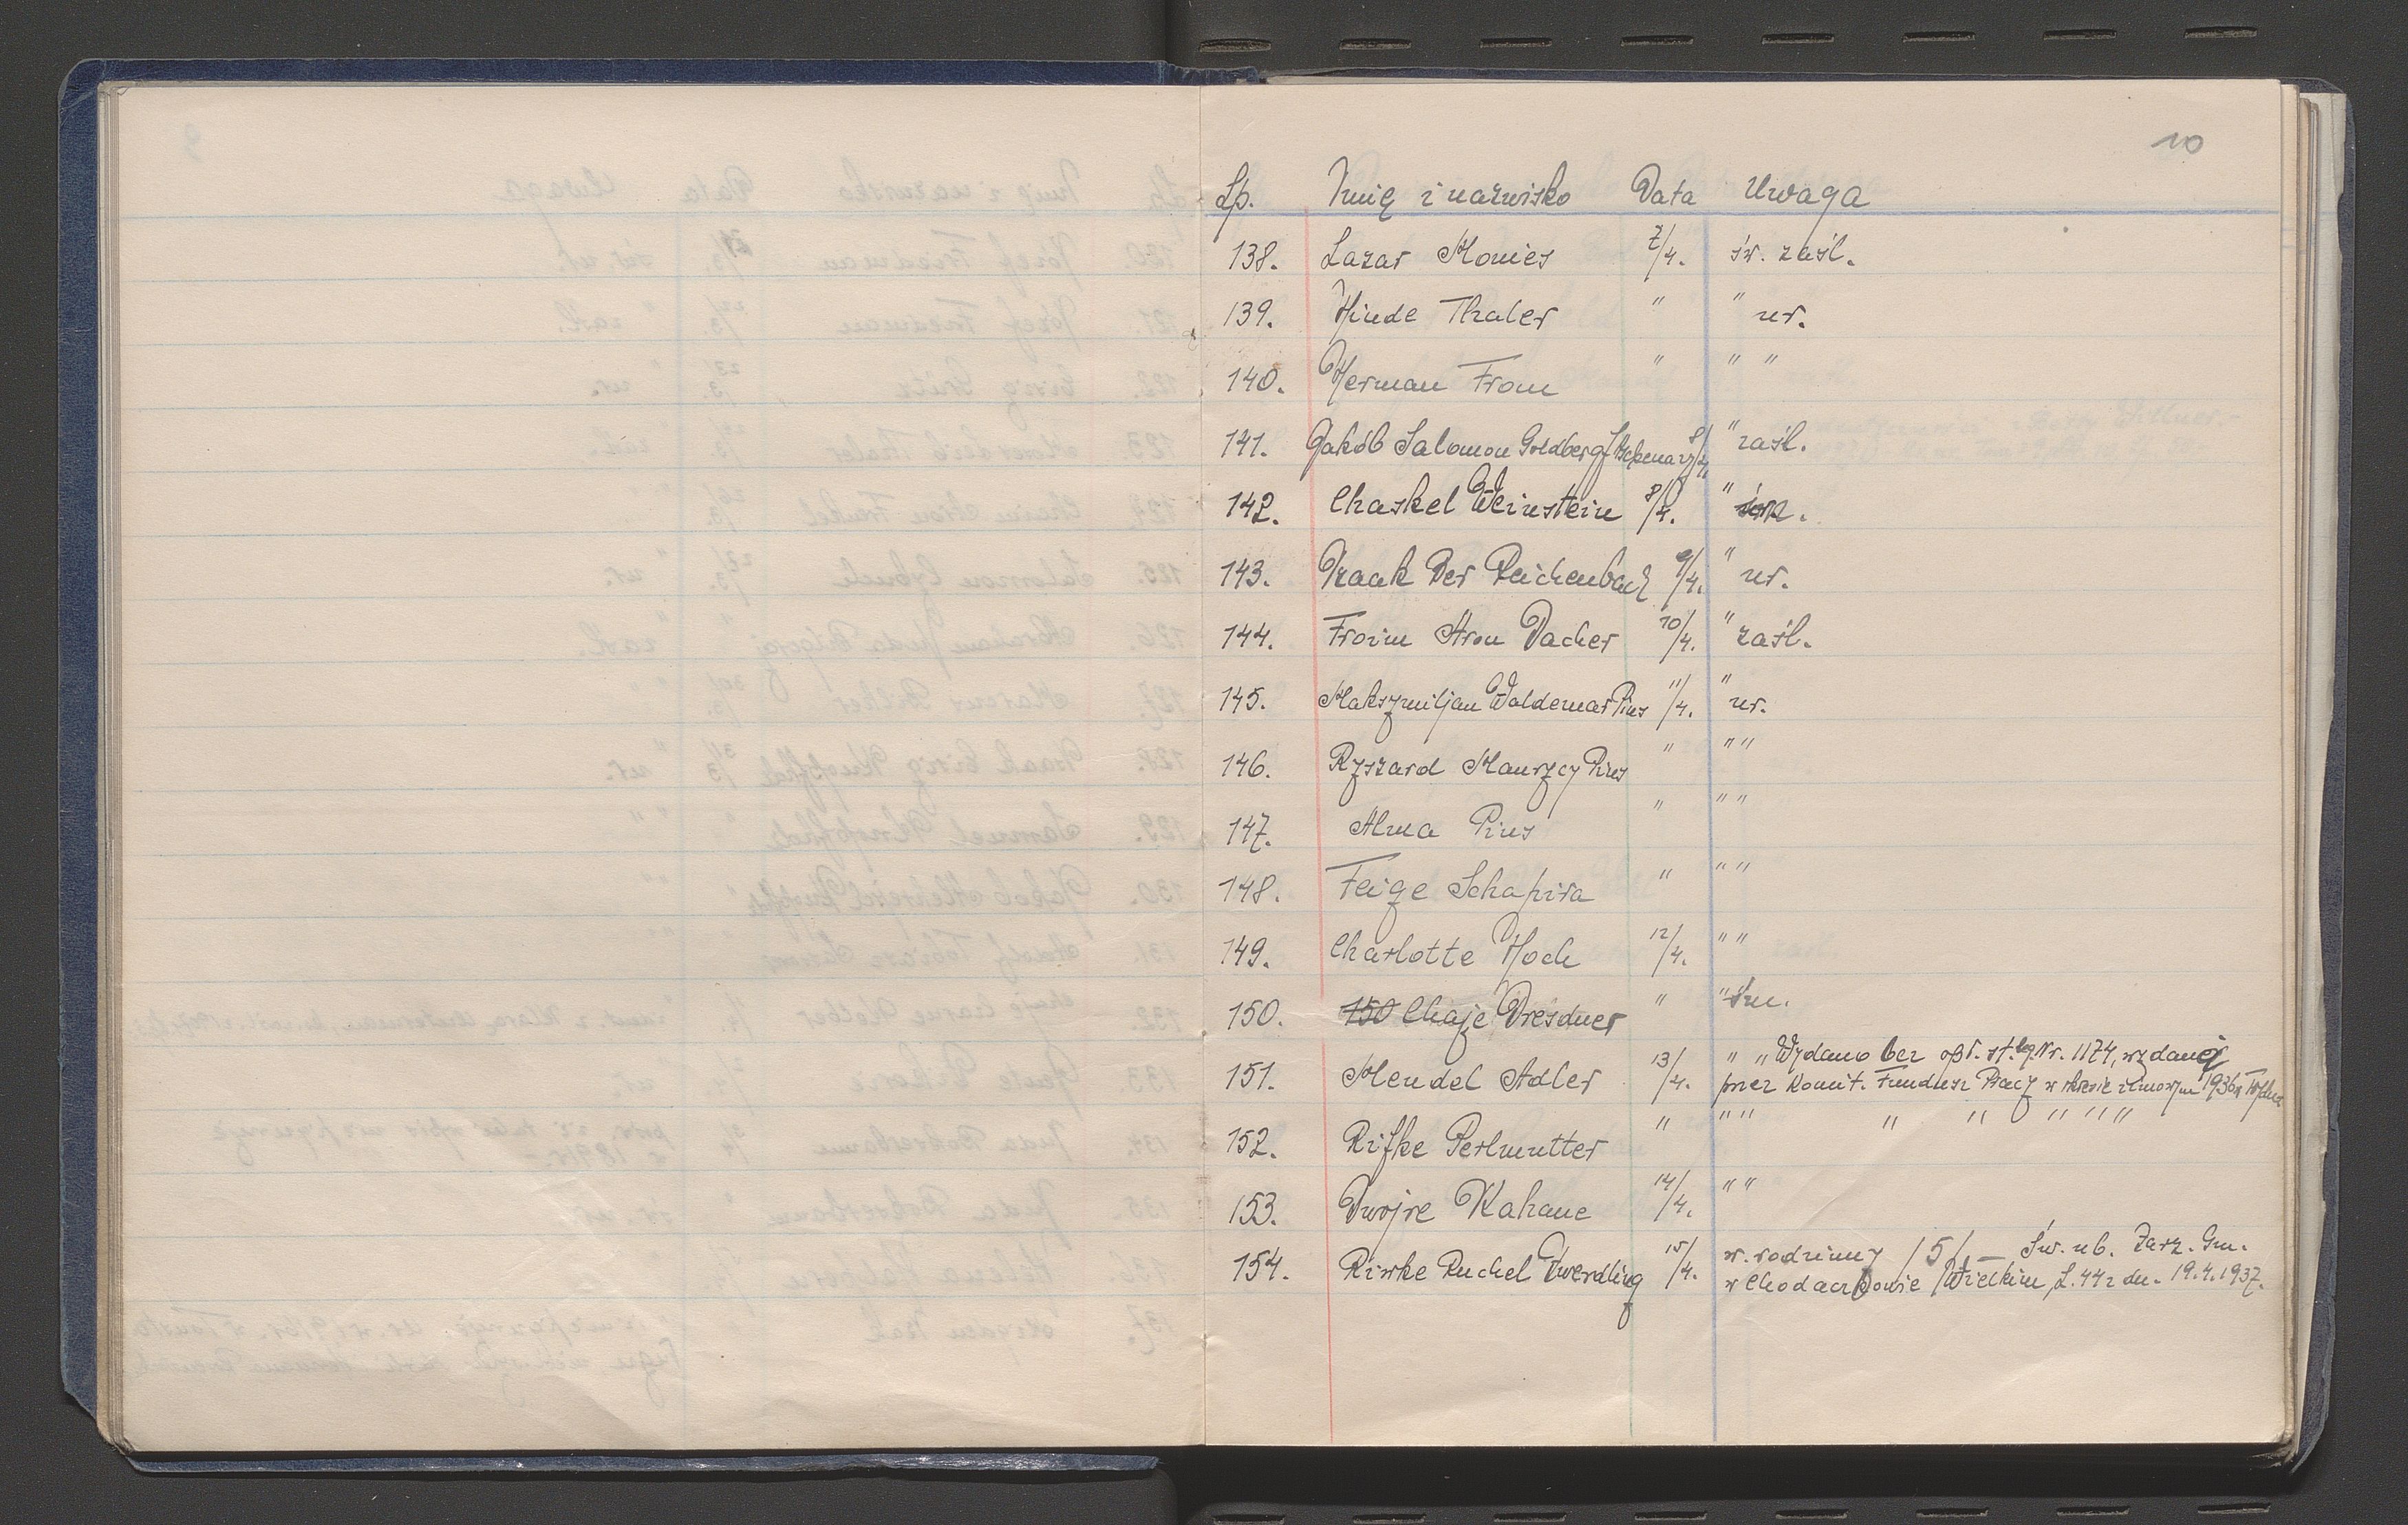 10
Lp. Imię i nazwisko Data Uwaga
138. Lazar Monies 7/4. św. zaśl.
139. Hinde Thaler " " ur.
140. Herman From " " "
141. Jakób Salomon Goldberg 8/4 " zaśl.
142. Chaskel Weinstein 8/4. "
143. Izaak Ber Reichenbach 9/4. " ur.
144. Froim Aron Dacher 10/4. " zaśl.
145. Maksymiljan Waldemar Pins 11/4. " ur.
146. Ryszard Maurycy Pins " " "
147. Alma Pins " " "
148. Feige Schapira " " "
149. Charlotte Hoch 12/4. " "
150. 150 Chaje Dresdner " " śm.
151. Mendel Adler 13/4. " " Wydano bez opł. st. leg. Nr. 1174, wydanej
przez Komit. Fundusz Pracy w okresie zimowym 1936
152. Rifke Perlmutter " " " " " " " "
153. Dwojre Kahane 14/4. " "
154. Riwke Ruchel Zwerdling 15/4. w. rodzinny /5/, – Św. ub. Zarz. Gm.
w Chodaczkowie Wielkim, L. 44 z dn. 19.4.1937.